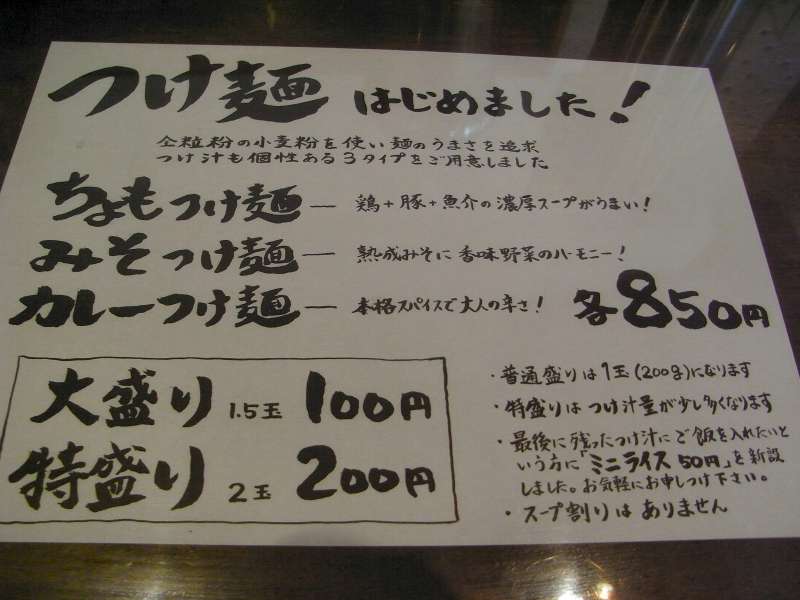 つけ麺 はじめました!
全粒粉の小麦粉を使い麺のうまさを追求
つけ汁も個性ある3タイプをご用意しました
ちょもつけ麺 ― 鶏+豚+魚介の濃厚スープがうまい!
みそつけ麺 ― 熟成みそに香味野菜のハーモニー!
カレーつけ麺 ― 本格スパイスで大人の辛さ! 各850円
大盛り 1.5玉 100円
特盛り 2玉 200円
・普通盛りは1玉(200g)になります
・特盛りはつけ汁量が少し多くなります
・最後に残ったつけ汁にご飯を入れたいと
いう方に「ミニライス50円」を新設
しました。お気軽にお申しつけ下さい。
・スープ割りはありません